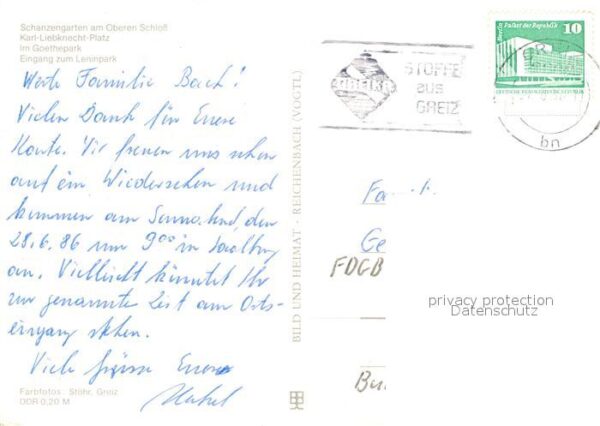 Schanzengarten am Oberen Schloß
Karl-Liebknecht-Platz
Im Goethepark
Eingang zum Leninpark
Werte Familie Bach!
Vielen Dank für Eure
Karte. Wir freuen uns schon
auf ein Wiedersehen und
kommen am Sonnabend, den
28.6.86 um 9⁰⁰ in Saalburg
an. Vielleicht könntet Ihr
zur genannten Zeit am Orts-
eingang stehen.
Viele Grüsse Eure
Farbfotos: Stöhr, Greiz
DDR 0,20 M
BILD UND HEIMAT · REICHENBACH (VOGTL)
STOFFE
aus
GREIZ
Berlin, Palast der Republik
10
DEUTSCHE DEMOKRATISCHE REPUBLIK
GR
bn
Fa
Ge
FDGB
privacy protection
Datenschutz